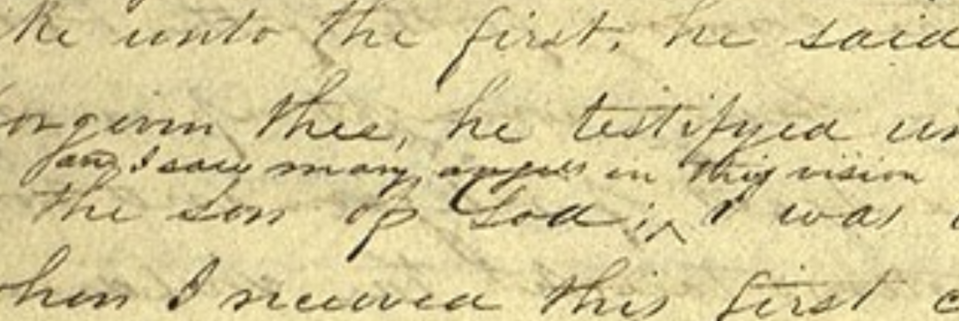 like unto the first. he said
forgiven thee, he testifyed un
and I saw many angels in this vision
the son of God; I was
when I received this first c